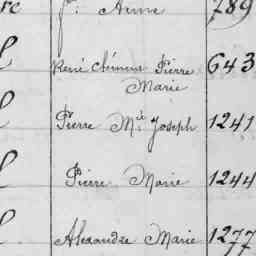 rc fs Anne 789
l René Clément Pierre 643
Marie
l Pierre Mie Joseph 1241
l Pierre Marie 1244
l Alexandre Marie 1277
77